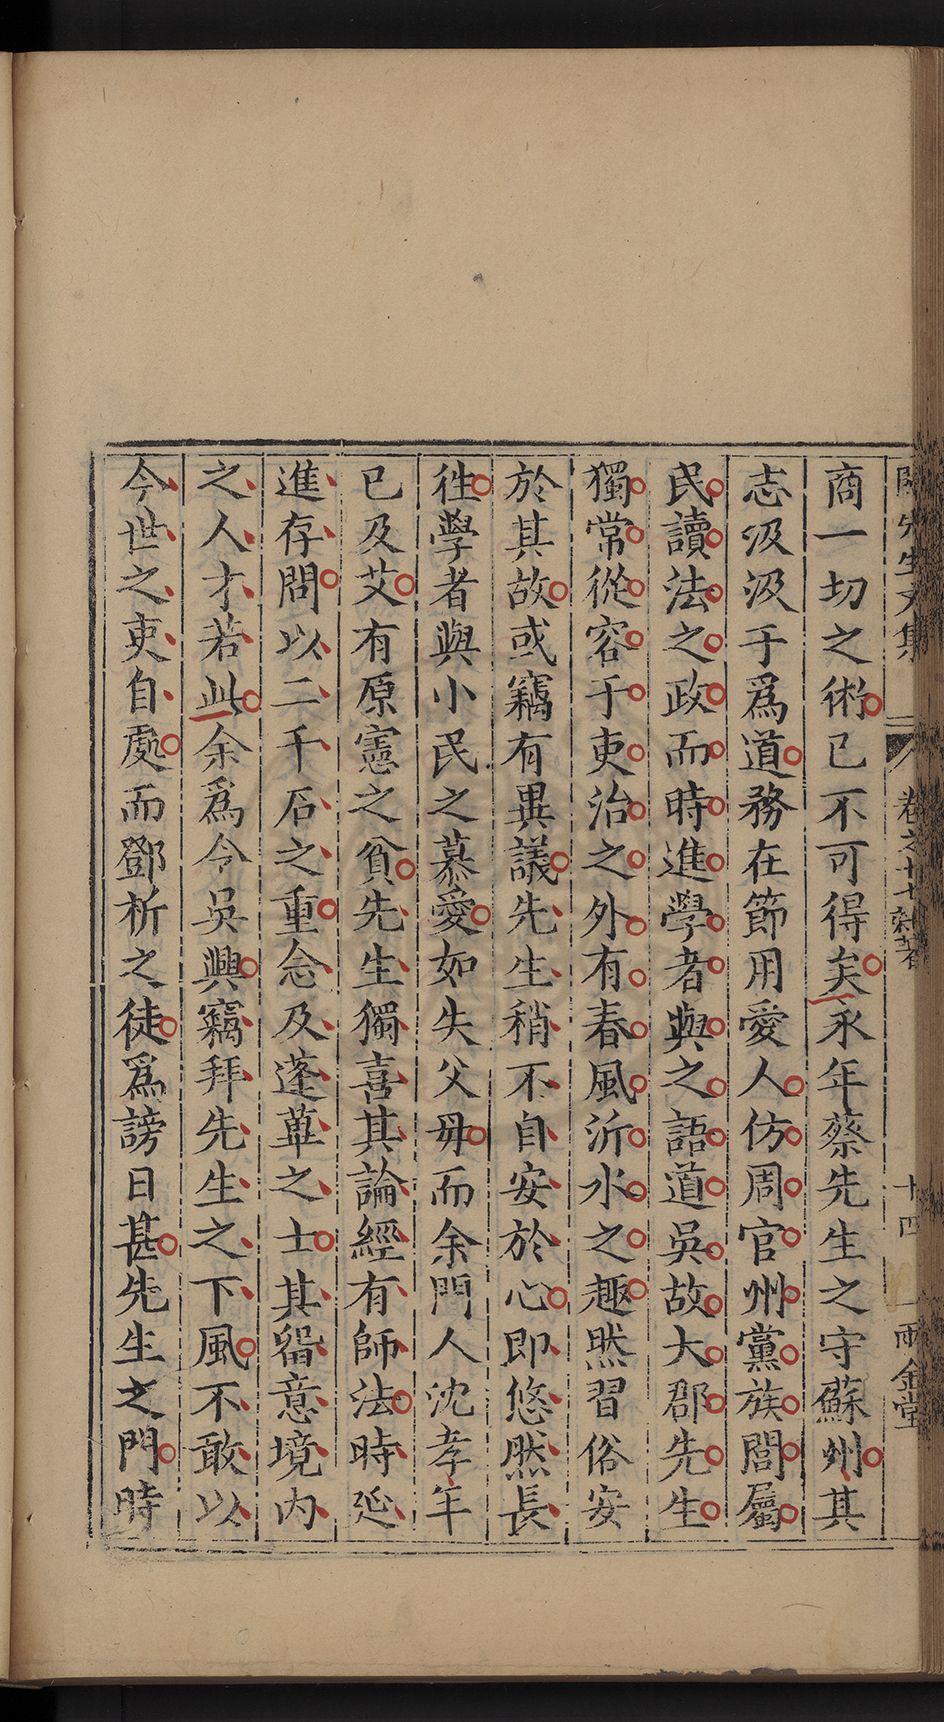 先生文集 卷之十七 雜著 十四 一雨金堂
商一切之術已不可得矣永年蔡先生之守蘇州其
志汲汲于爲道務在節用愛人仿周官州黨族閭屬
民讀法之政而時進學者與之語道吳故大郡先生
獨常從容于吏治之外有春風沂水之趣然習俗安
於其故或竊有異議先生稍不自安於心即悠然長
徃學者與小民之慕愛如失父母而余門人沈孝年
已及艾有原憲之貧先生獨喜其論經有師法時延
進存問以二千石之重念及蓬蓽之士其畱意境内
之人才若此余爲令吳興竊拜先生之下風不敢以
今世之吏自處而鄧析之徒爲謗日甚先生之門時